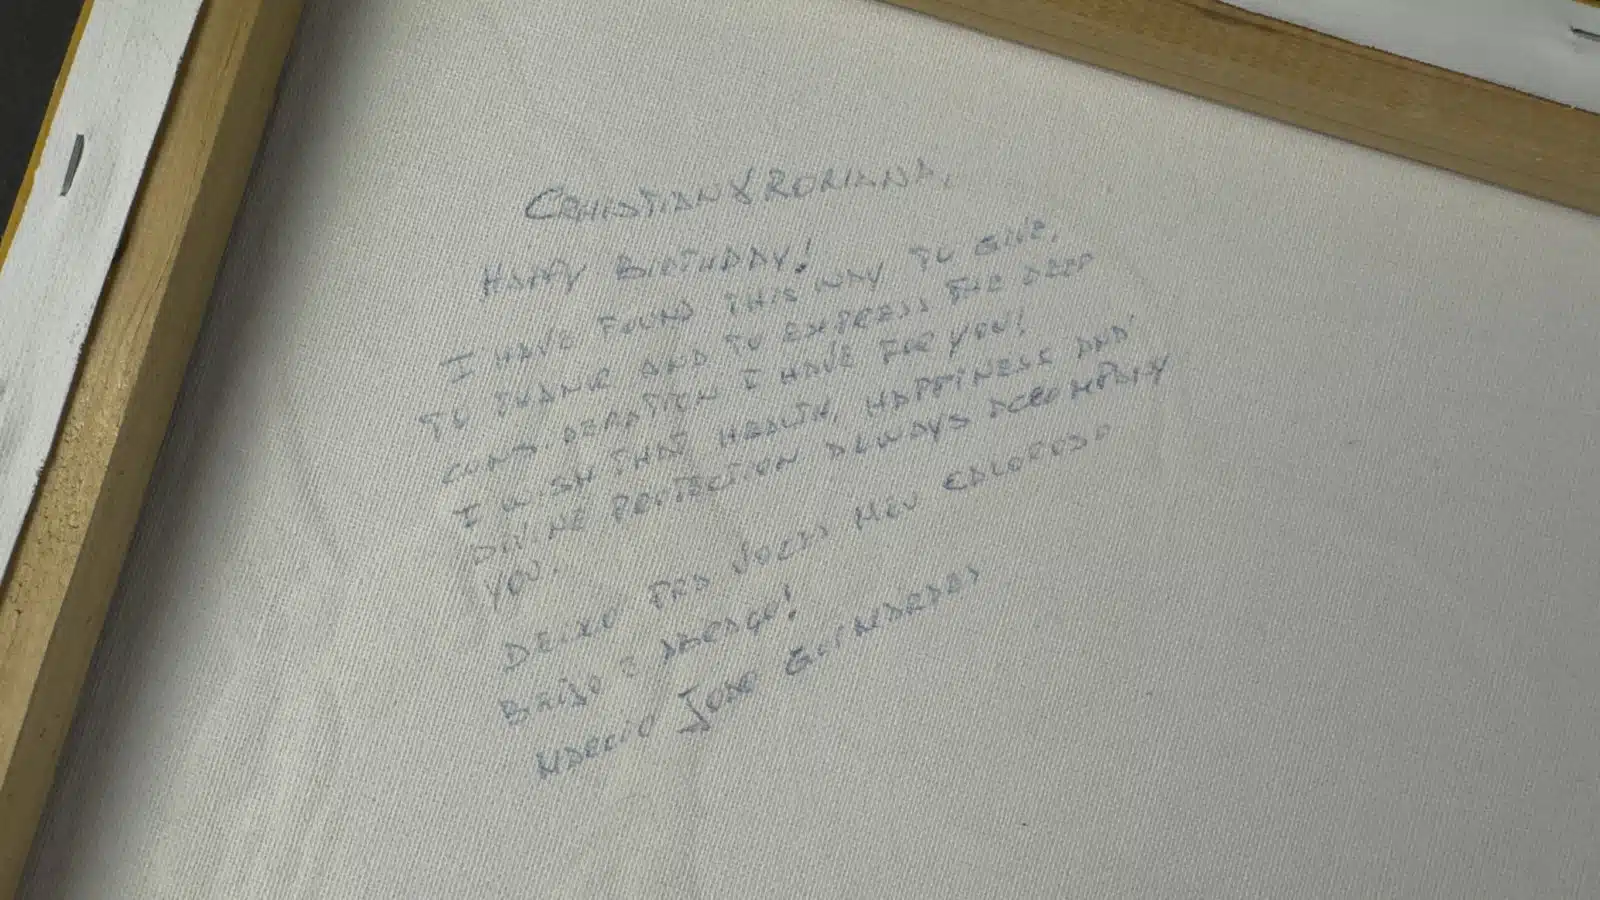 CHRISTIAN & RORIANA,
HAPPY BIRTHDAY!
I HAVE FOUND THIS WAY TO GIVE,
TO THANK AND TO EXPRESS THE DEEP
CONSIDERATION I HAVE FOR YOU!
I WISH THAT HEALTH, HAPPINESS AND
DIVINE PROTECTION ALWAYS ACCOMPANY
YOU.
DEIXO PRA VOCES MEU CALOROSO
BEIJO E ABRAÇO!
MARCIO JOSE GUIMARAES